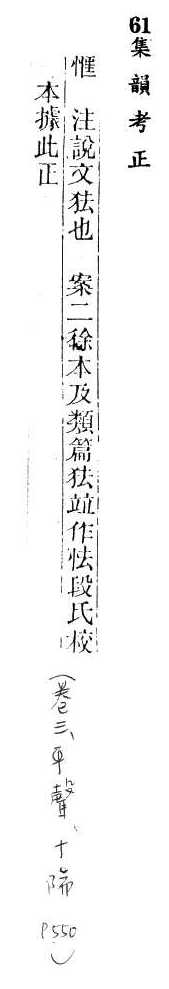 61集韻考正
恇 注說文㹤也 案二徐本及類篇㹤竝作怯段氏校
本據此正
(卷三、平聲、十陽 P.550)